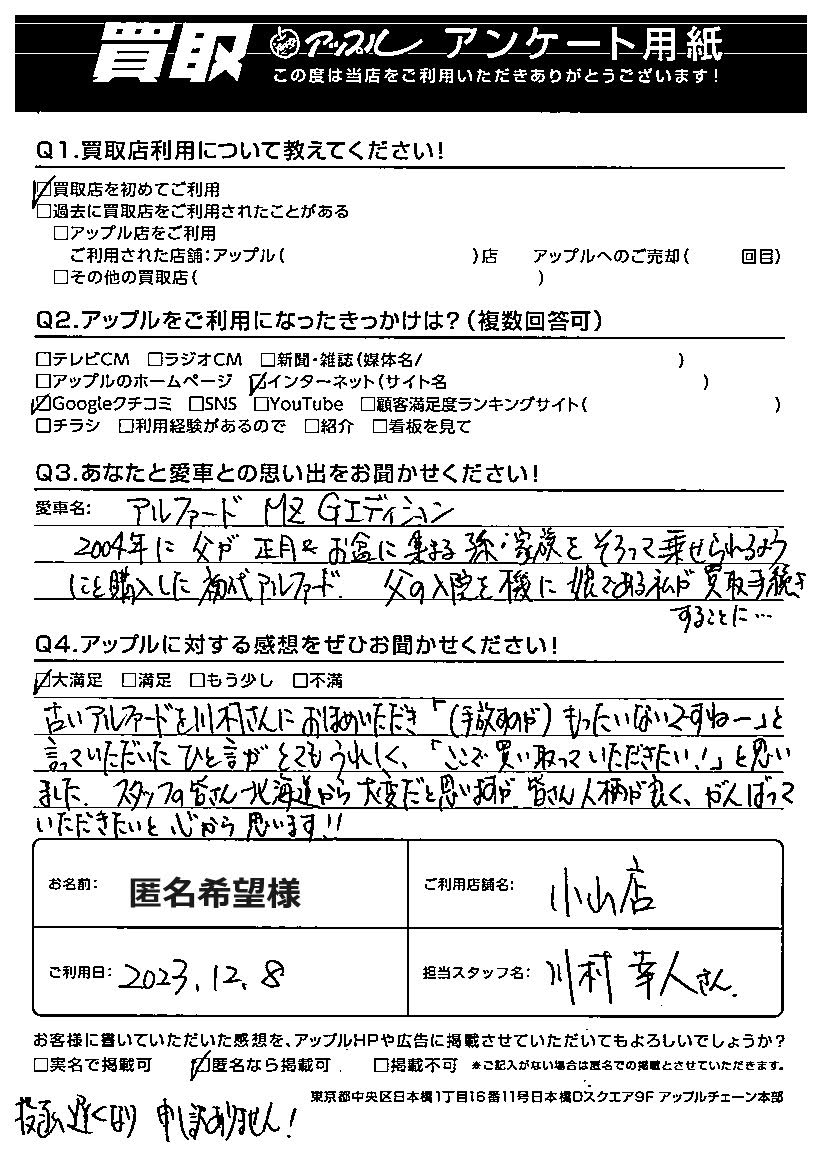 買取 アップル アンケート用紙
この度は当店をご利用いただきありがとうございます!
Q1.買取店利用について教えてください!
☑買取店を初めてご利用
□過去に買取店をご利用されたことがある
□アップル店をご利用
ご利用された店舗:アップル( )店 アップルへのご売却( 回目)
□その他の買取店( )
Q2.アップルをご利用になったきっかけは?(複数回答可)
□テレビCM □ラジオCM □新聞・雑誌(媒体名/ )
□アップルのホームページ ☑インターネット(サイト名 )
☑Googleクチコミ □SNS □YouTube □顧客満足度ランキングサイト( )
□チラシ □利用経験があるので □紹介 □看板を見て
Q3.あなたと愛車との思い出をお聞かせください!
愛車名: アルファード MZ Gエディション
2004年に父が正月やお盆に集まる孫・家族をそろって乗せられるよう
にと購入した初代アルファード. 父の入院を機に娘である私が買取手続き
することに…
Q4.アップルに対する感想をぜひお聞かせください!
☑大満足 □満足 □もう少し □不満
古いアルファードを川村さんにおほめいただき「(手放すのが)もったいないですねー」と
言っていただいたひと言がとてもうれしく、「ここで買い取っていただきたい!」と思い
ました. スタッフの皆さん北海道から大変だと思いますが皆さん人柄が良く、がんばって
いただきたいと心から思います!!
お名前: 匿名希望様 ご利用店舗名: 小山店
ご利用日: 2023.12.8 担当スタッフ名: 川村 幸人さん.
お客様に書いていただいた感想を、アップルHPや広告に掲載させていただいてもよろしいでしょうか?
□実名で掲載可 ☑匿名なら掲載可 □掲載不可 *ご記入がない場合は匿名での掲載とさせていただきます。
東京都中央区日本橋1丁目16番11号日本橋Dスクエア9F アップルチェーン本部
投函遅くなり申し訳ありません!